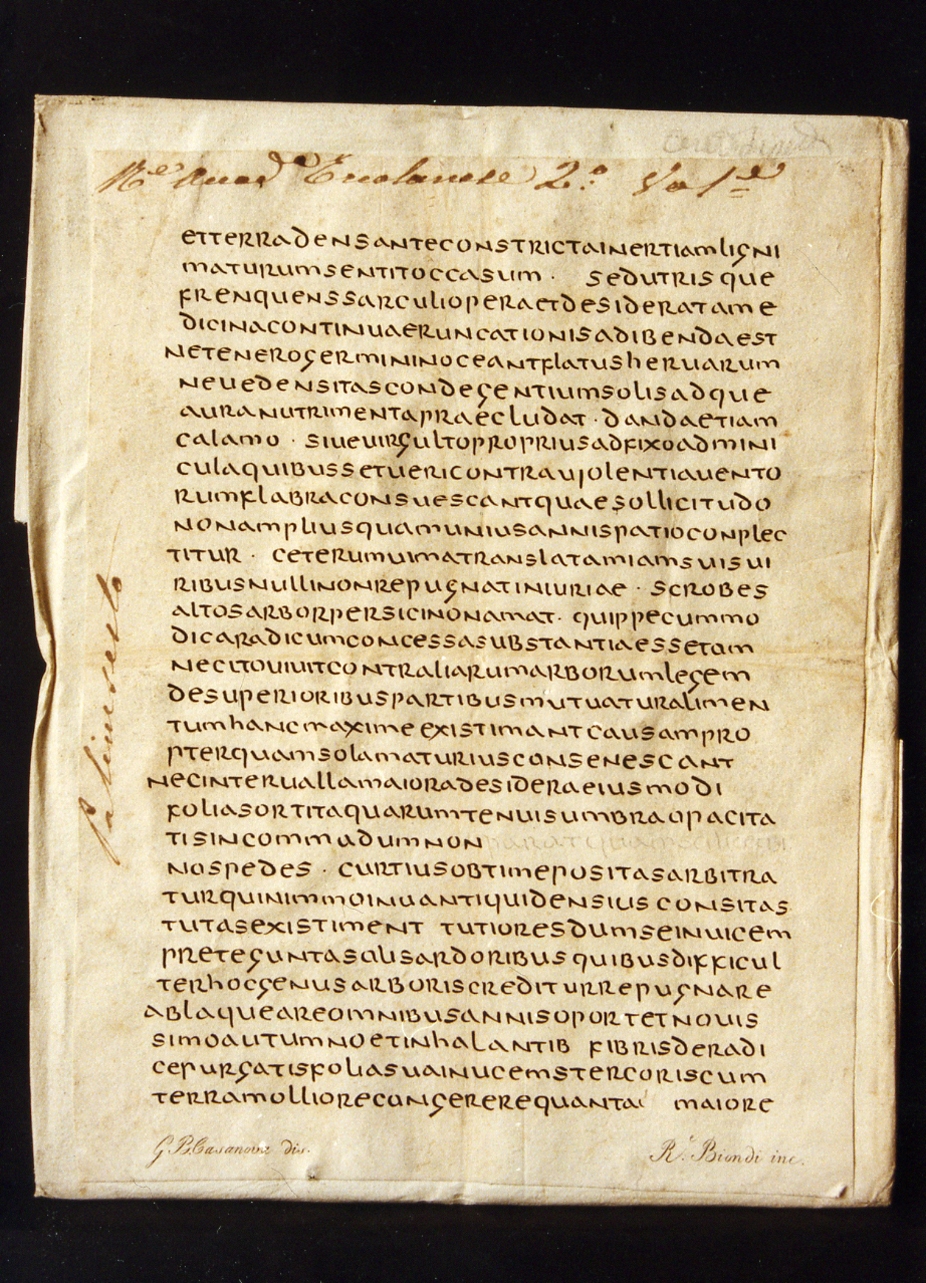 2.º Vol.e
etterradensanteconstrictainertiamligni
maturumsentitoccasum · sedutrisque
frenquenssarculioperaetdesideratame
dicinacontinuaeruncationisadibendaest
netenerogermininoceantflatusheruarum
neuedensitascondegentiumsolisadque
auranutrimentapraecludat · dandaetiam
calamo · siueuirgultopropriusadfixoadmini
culaquibussetuericontrauiolentiauento
rumflabraconsuescantquaesollicitudo
nonampliusquamuniusannispatioconplec
titur · ceterumuimatranslatamiamsuisui
ribusnullinonrepugnatiniuriae · scrobes
altosarborpersicinonamat · quippecummo
dicaradicumconcessasubstantiaessetam
necitouiuitcontraliarumarborumlegem
desuperioribuspartibusmutuaturalimen
tumhancmaximeexistimantcausampro
pterquamsolamaturiusconsenescant
necinteruallamaioradesideraeiusmodi
foliasortitaquarumtenuisumbraopacita
tisincommadumnon
nospedes · curtiusobtimepositasarbitra
turquinimmoinuantiquidensius consitas
tutasexistiment tutioresdumseinuicem
preteguntasolisardoribusquibusdifficul
terhocgenusarboriscrediturrepugnare
ablaqueareomnibusannisoportetnouis
simoautumnoetinhalantib fibrisderadi
cepurgatisfoliasuainucemstercoriscum
terramolliorecongererequantai maiore
G B Casanova dis.
R.e Biondi inc.